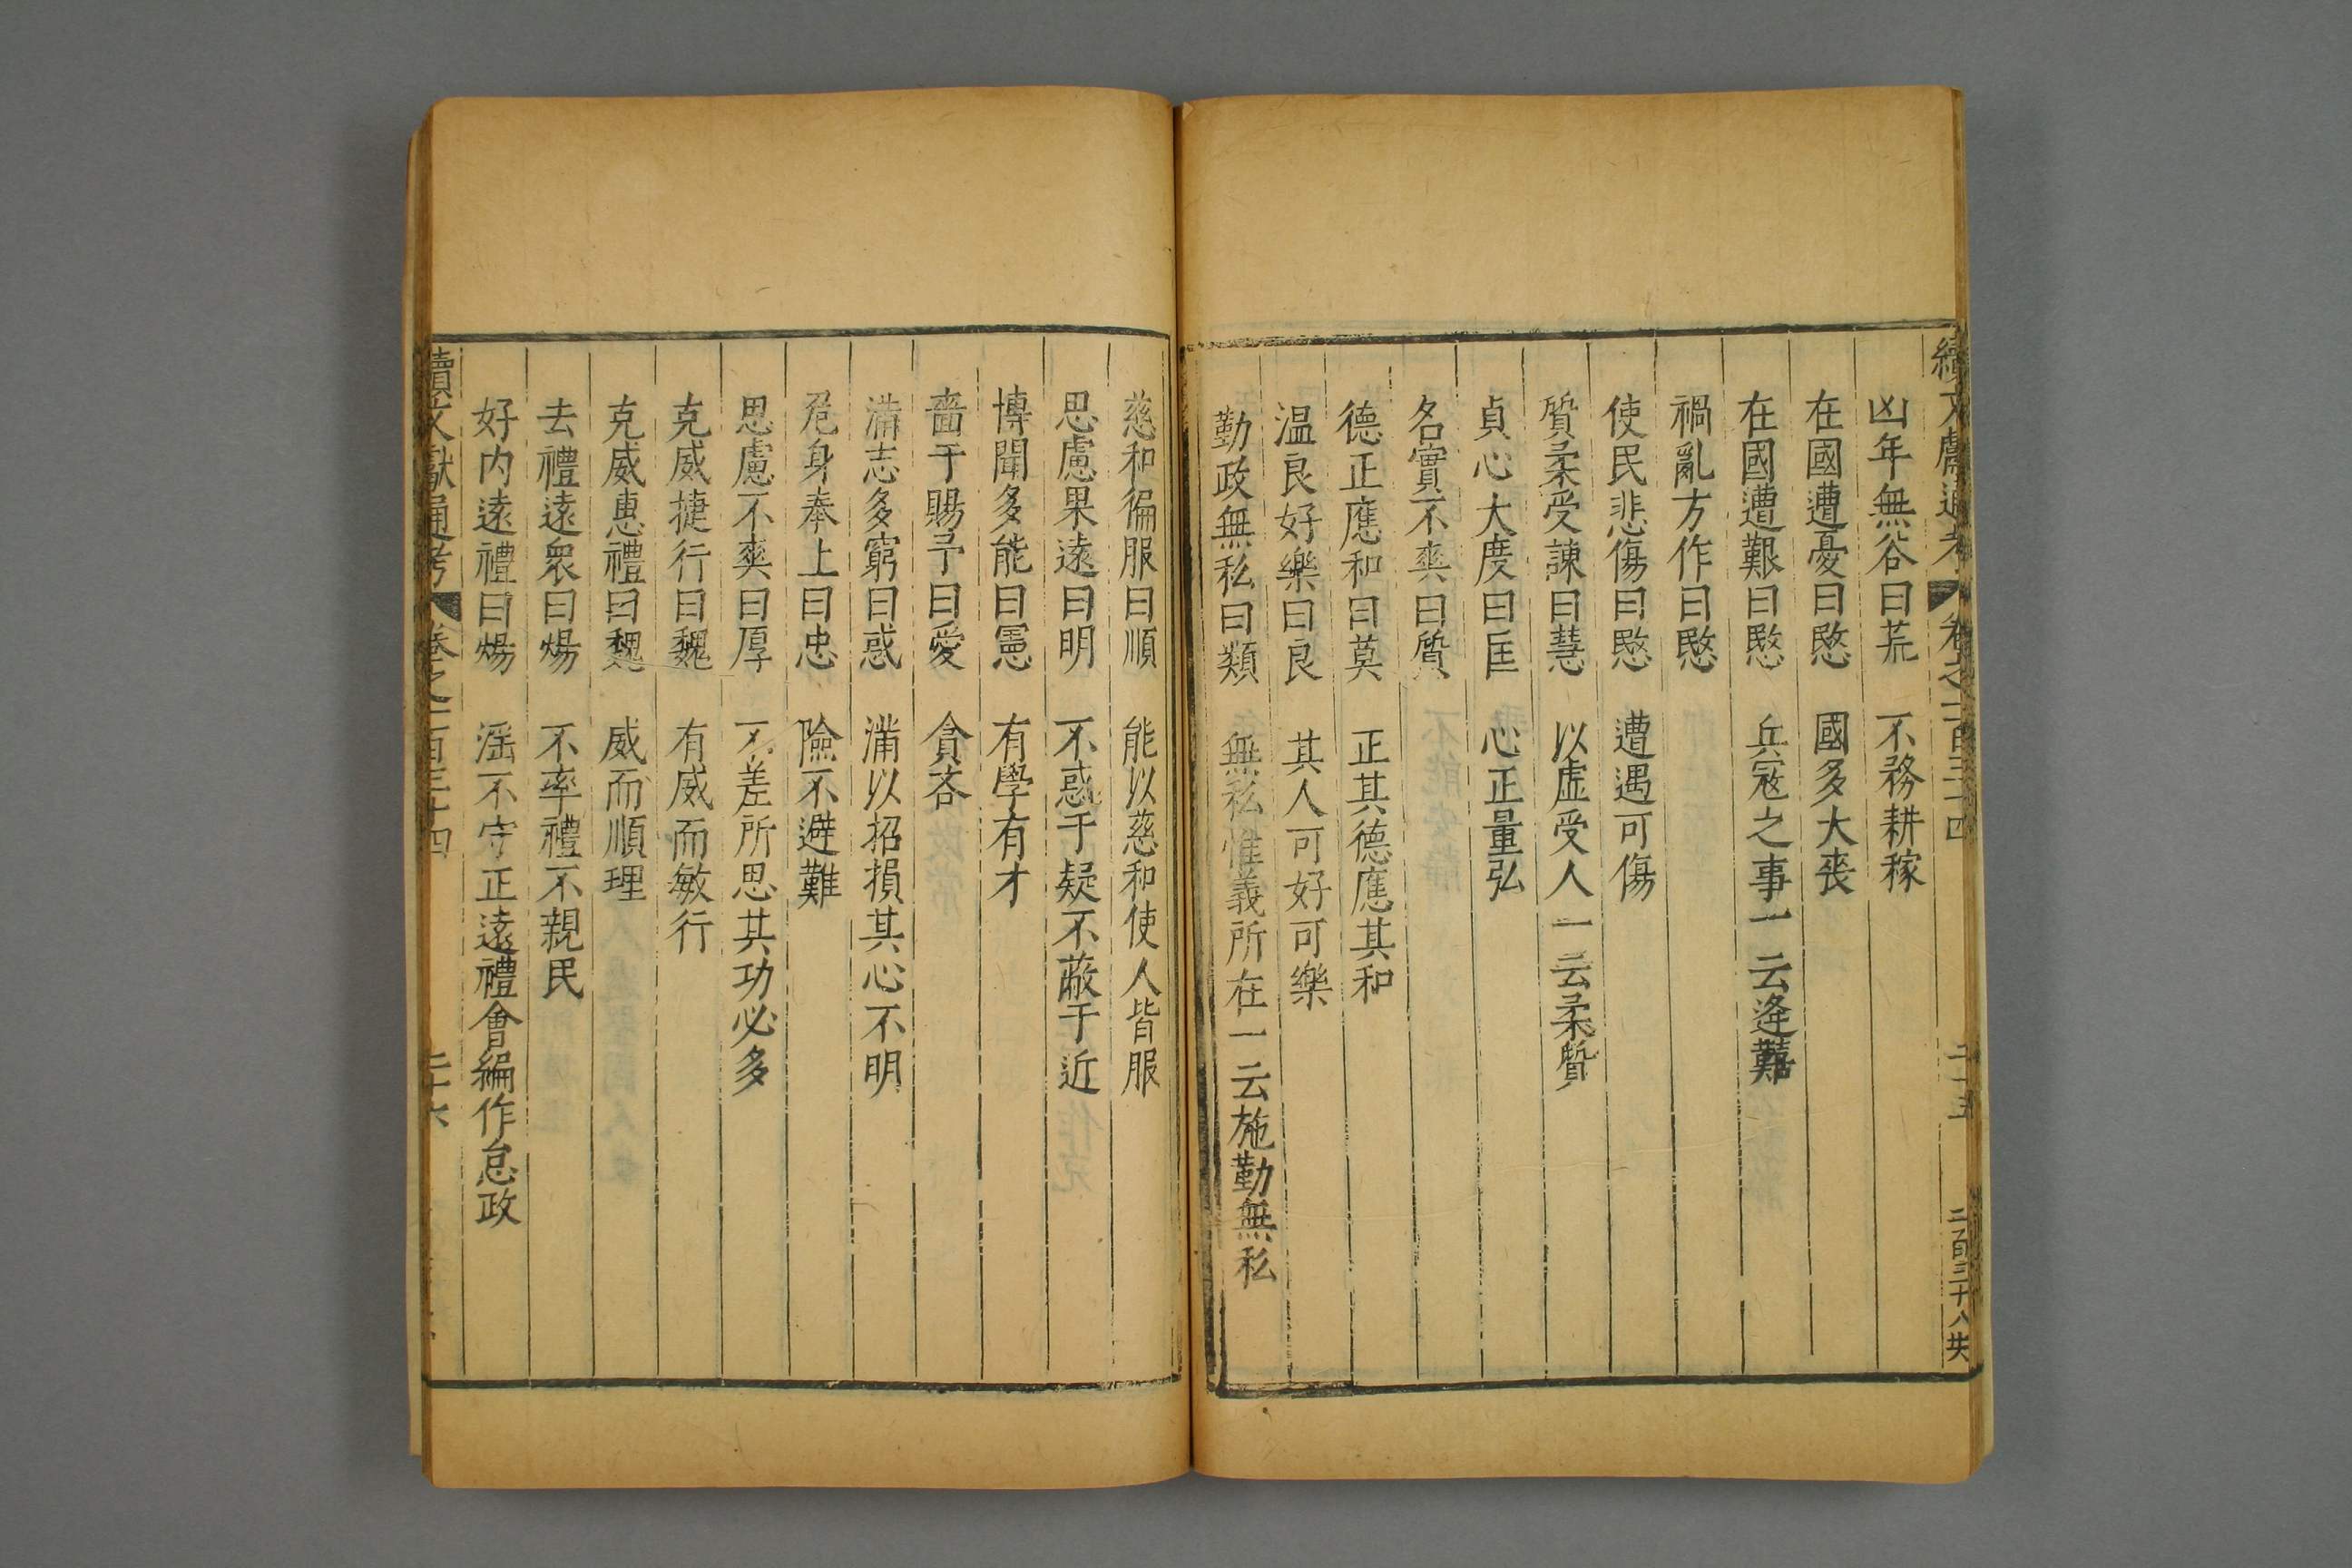 續文獻通考 卷之一百三十四 二十五 二百三十八
凶年無谷曰荒 不務耕稼
在國遭憂曰愍 國多大喪
在國遭艱曰愍 兵寇之事一云逄難
禍亂方作曰愍
使民悲傷曰愍 遭遇可傷
質柔受諫曰慧 以虛受人一云柔質
貞心大度曰匡 心正量弘
名實不爽曰質
德正應和曰莫 正其德應其和
温良好樂曰良 其人可好可樂
勤政無私曰類 無私惟義所在一云施勤無私
慈和徧服曰順 能以慈和使人皆服
思慮果遠曰明 不惑于疑不蔽于近
博聞多能曰憲 有學有才
嗇于賜予曰愛 貪吝
滿志多窮曰惑 滿以招損其心不明
危身奉上曰忠 險不避難
思慮不爽曰厚 不差所思其功必多
克威捷行曰魏 有威而敏行
克威惠禮曰魏 威而順理
去禮遠衆曰煬 不率禮不親民
好内遠禮曰煬 淫不守正遠禮會編作怠政
續文獻通考 卷之一百三十四 二十六